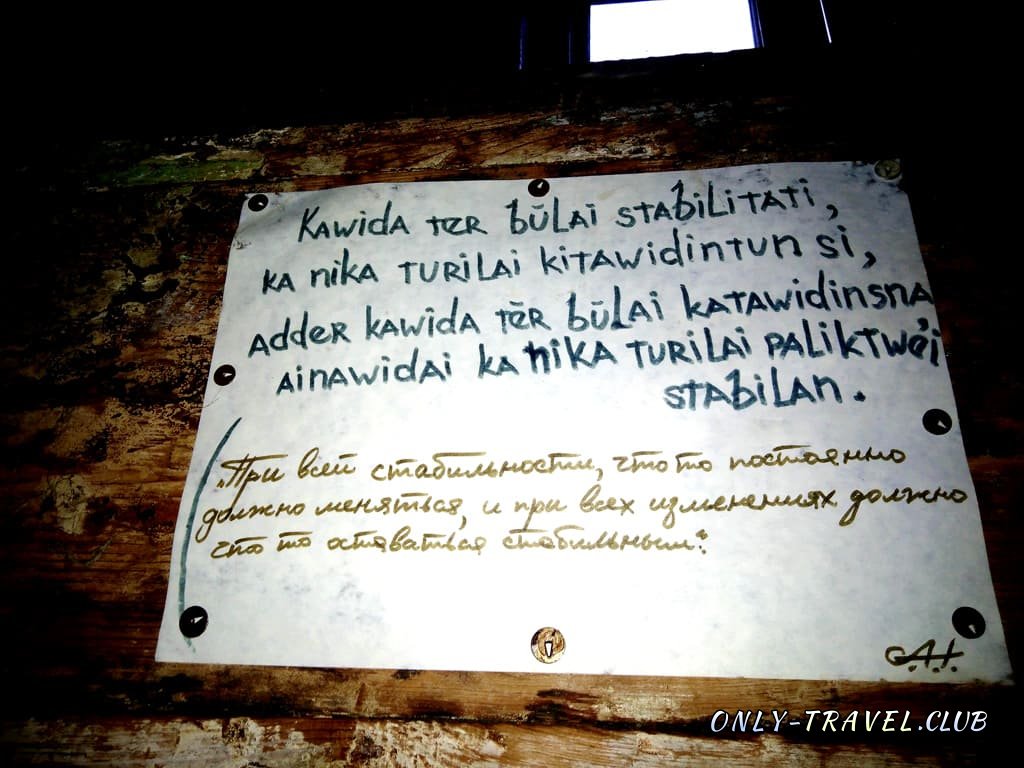 Kawida tēr būlai stabilitāti,
ka nika turilai kitawidintun si,
adder kawīda tēr būlai katawidinsna
ainawidai ka nika turilai paliktwēi
stabilan.
„При всей стабильности, что то постоянно
должно меняться, и при всех изменениях должно
что то оставаться стабильным."
G.A.I.
ONLY-TRAVEL.CLUB